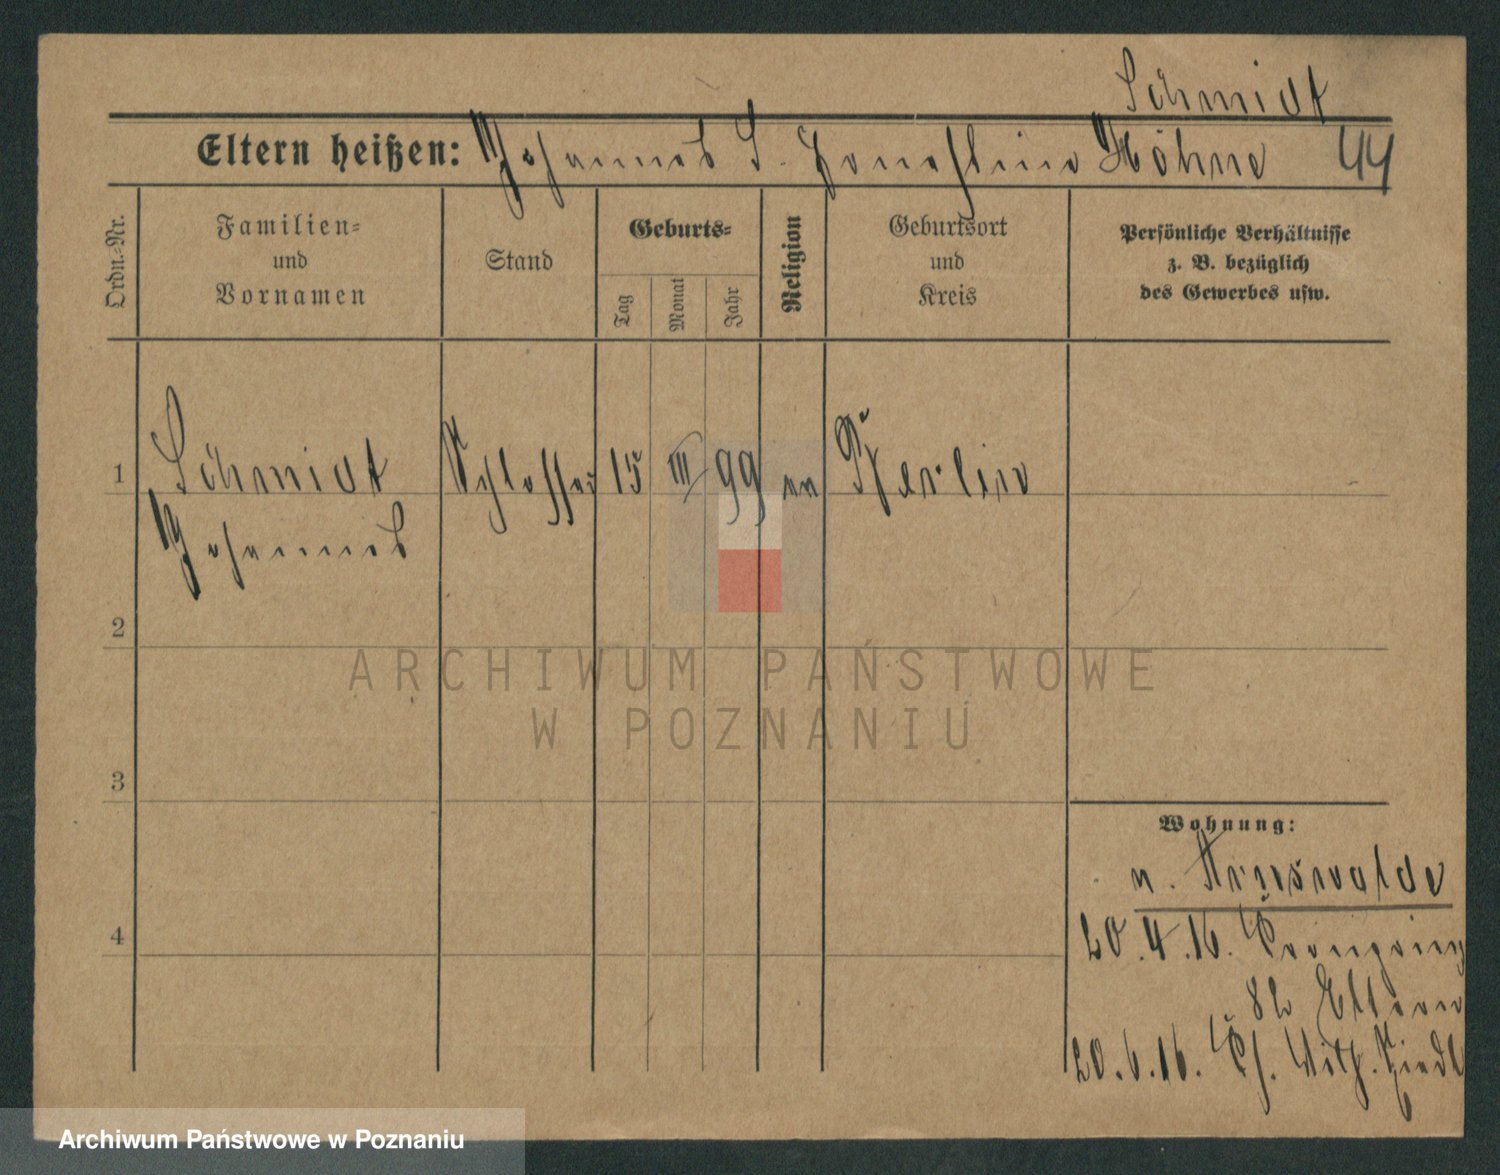 Schmidt
Eltern heißen: Johannes S. Höhne 44
Ordn.-Nr.
Familien-
und
Vornamen
Stand
Geburts-
Tag
Monat
Jahr
Religion
Geburtsort
und
Kreis
Persönliche Verhältnisse
z. B. bezüglich
des Gewerbes usw.
1 Schmidt Schlosser 15 III 99 ev Berlin
Johannes
2
3
4
ARCHIWUM PAŃSTWOWE
W POZNANIU
Wohnung:
v. Arnswalde
20.4.16.
82 Eltern
20.6.16.
Archiwum Państwowe w Poznaniu